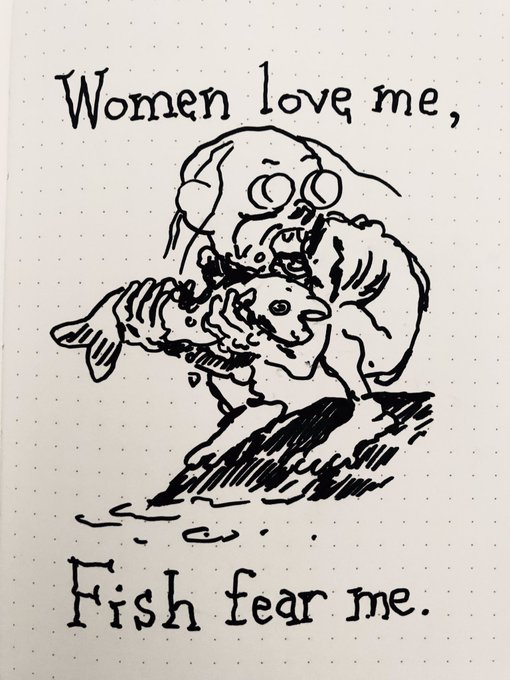 Women love me,
Fish fear me.